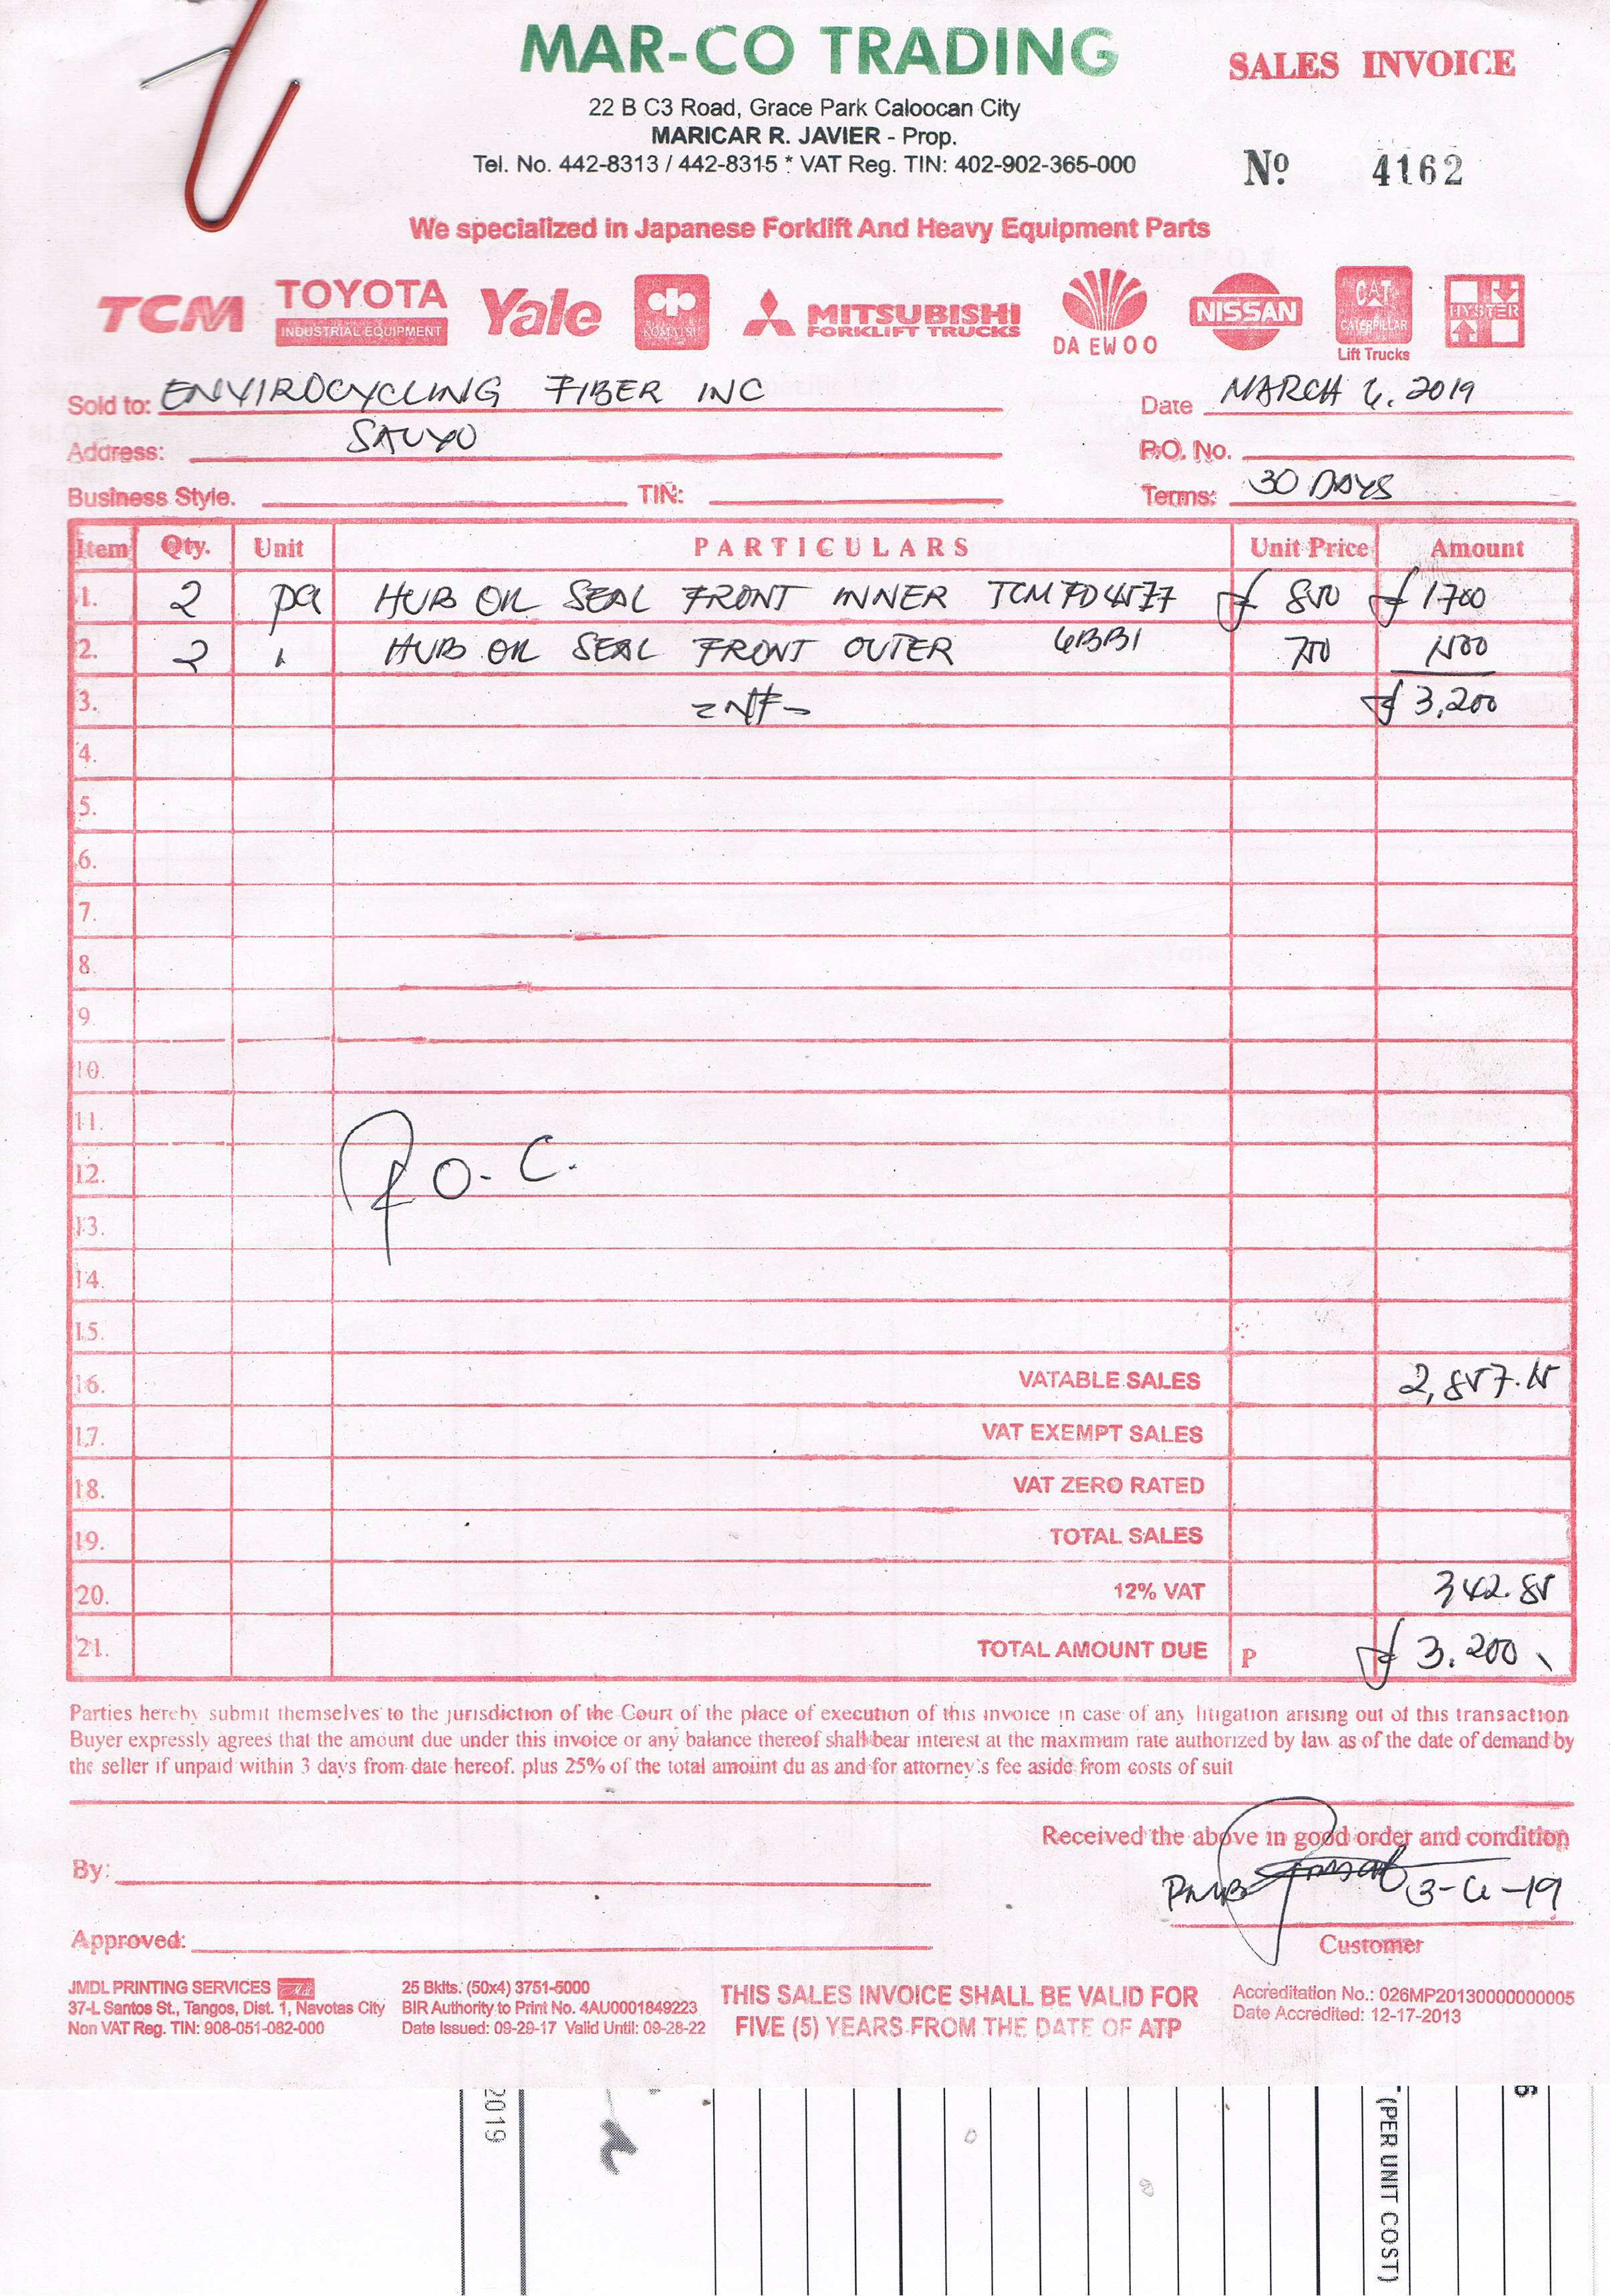 MAR-CO TRADING
SALES INVOICE
22 B C3 Road, Grace Park Caloocan City
MARICAR R. JAVIER - Prop.
Tel. No. 442-8313 / 442-8315 * VAT Reg. TIN: 402-902-365-000
Nº 4162
We specialized in Japanese Forklift And Heavy Equipment Parts
TCM TOYOTA INDUSTRIAL EQUIPMENT Yale KOMATSU MITSUBISHI FORKLIFT TRUCKS DAEWOO NISSAN CAT CATERPILLAR Lift Trucks HYSTER
Sold to: ENVIROCYCLING FIBER INC Date MARCH 6, 2019
Address: SAUYO P.O. No.
Business Style. TIN: Terms: 30 DAYS
Item Qty. Unit PARTICULARS Unit Price Amount
1. 2 pc HUB OIL SEAL FRONT INNER TCM FD45T7 ₱ 850 ₱ 1700
2. 2 " HUB OIL SEAL FRONT OUTER 6BB1 750 1500
3. -NF- ₱ 3,200
4.
5.
6.
7.
8.
9.
10.
11.
12. P.O.C.
13.
14.
15.
16. VATABLE SALES 2,857.15
17. VAT EXEMPT SALES
18. VAT ZERO RATED
19. TOTAL SALES
20. 12% VAT 342.85
21. TOTAL AMOUNT DUE P ₱ 3,200
Parties hereby submit themselves to the jurisdiction of the Court of the place of execution of this invoice in case of any litigation arising out of this transaction
Buyer expressly agrees that the amount due under this invoice or any balance thereof shall bear interest at the maximum rate authorized by law as of the date of demand by
the seller if unpaid within 3 days from date hereof. plus 25% of the total amount du as and for attorney's fee aside from costs of suit
Received the above in good order and condition
By:
3-6-19
Approved:
Customer
JMDL PRINTING SERVICES
37-L Santos St., Tangos, Dist. 1, Navotas City
Non VAT Reg. TIN: 908-051-082-000
25 Bklts. (50x4) 3751-5000
BIR Authority to Print No. 4AU0001849223
Date Issued: 09-29-17 Valid Until: 09-28-22
THIS SALES INVOICE SHALL BE VALID FOR
FIVE (5) YEARS FROM THE DATE OF ATP
Accreditation No.: 026MP20130000000005
Date Accredited: 12-17-2013
2019
(PER UNIT COST)